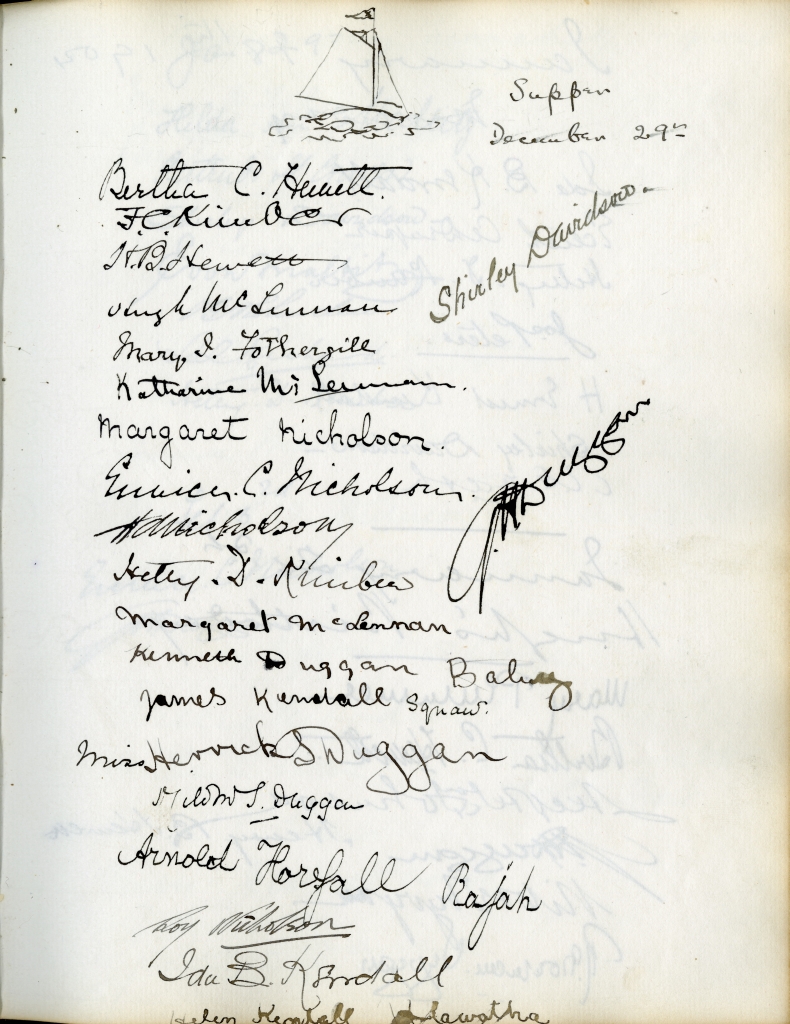 Supper
December 29th
Bertha C. Hewett.
F.C. Kimber
H.B. Hewett
Shirley Davidson.
Hugh McLennan
Mary I. Fothergill
Katharine McLennan.
Margaret Nicholson.
Eunice C. Nicholson.
Duggan
Nicholson
Hetty. D. Kimber
Margaret McLennan
Kenneth Duggan Baby
James Kendall Squaw.
Miss Herrick S Duggan
Mildred S. Duggan
Arnold Horsfall Rajah
Roy Nicholson
Ida B. Kendall
Helen Kendall Hiawatha